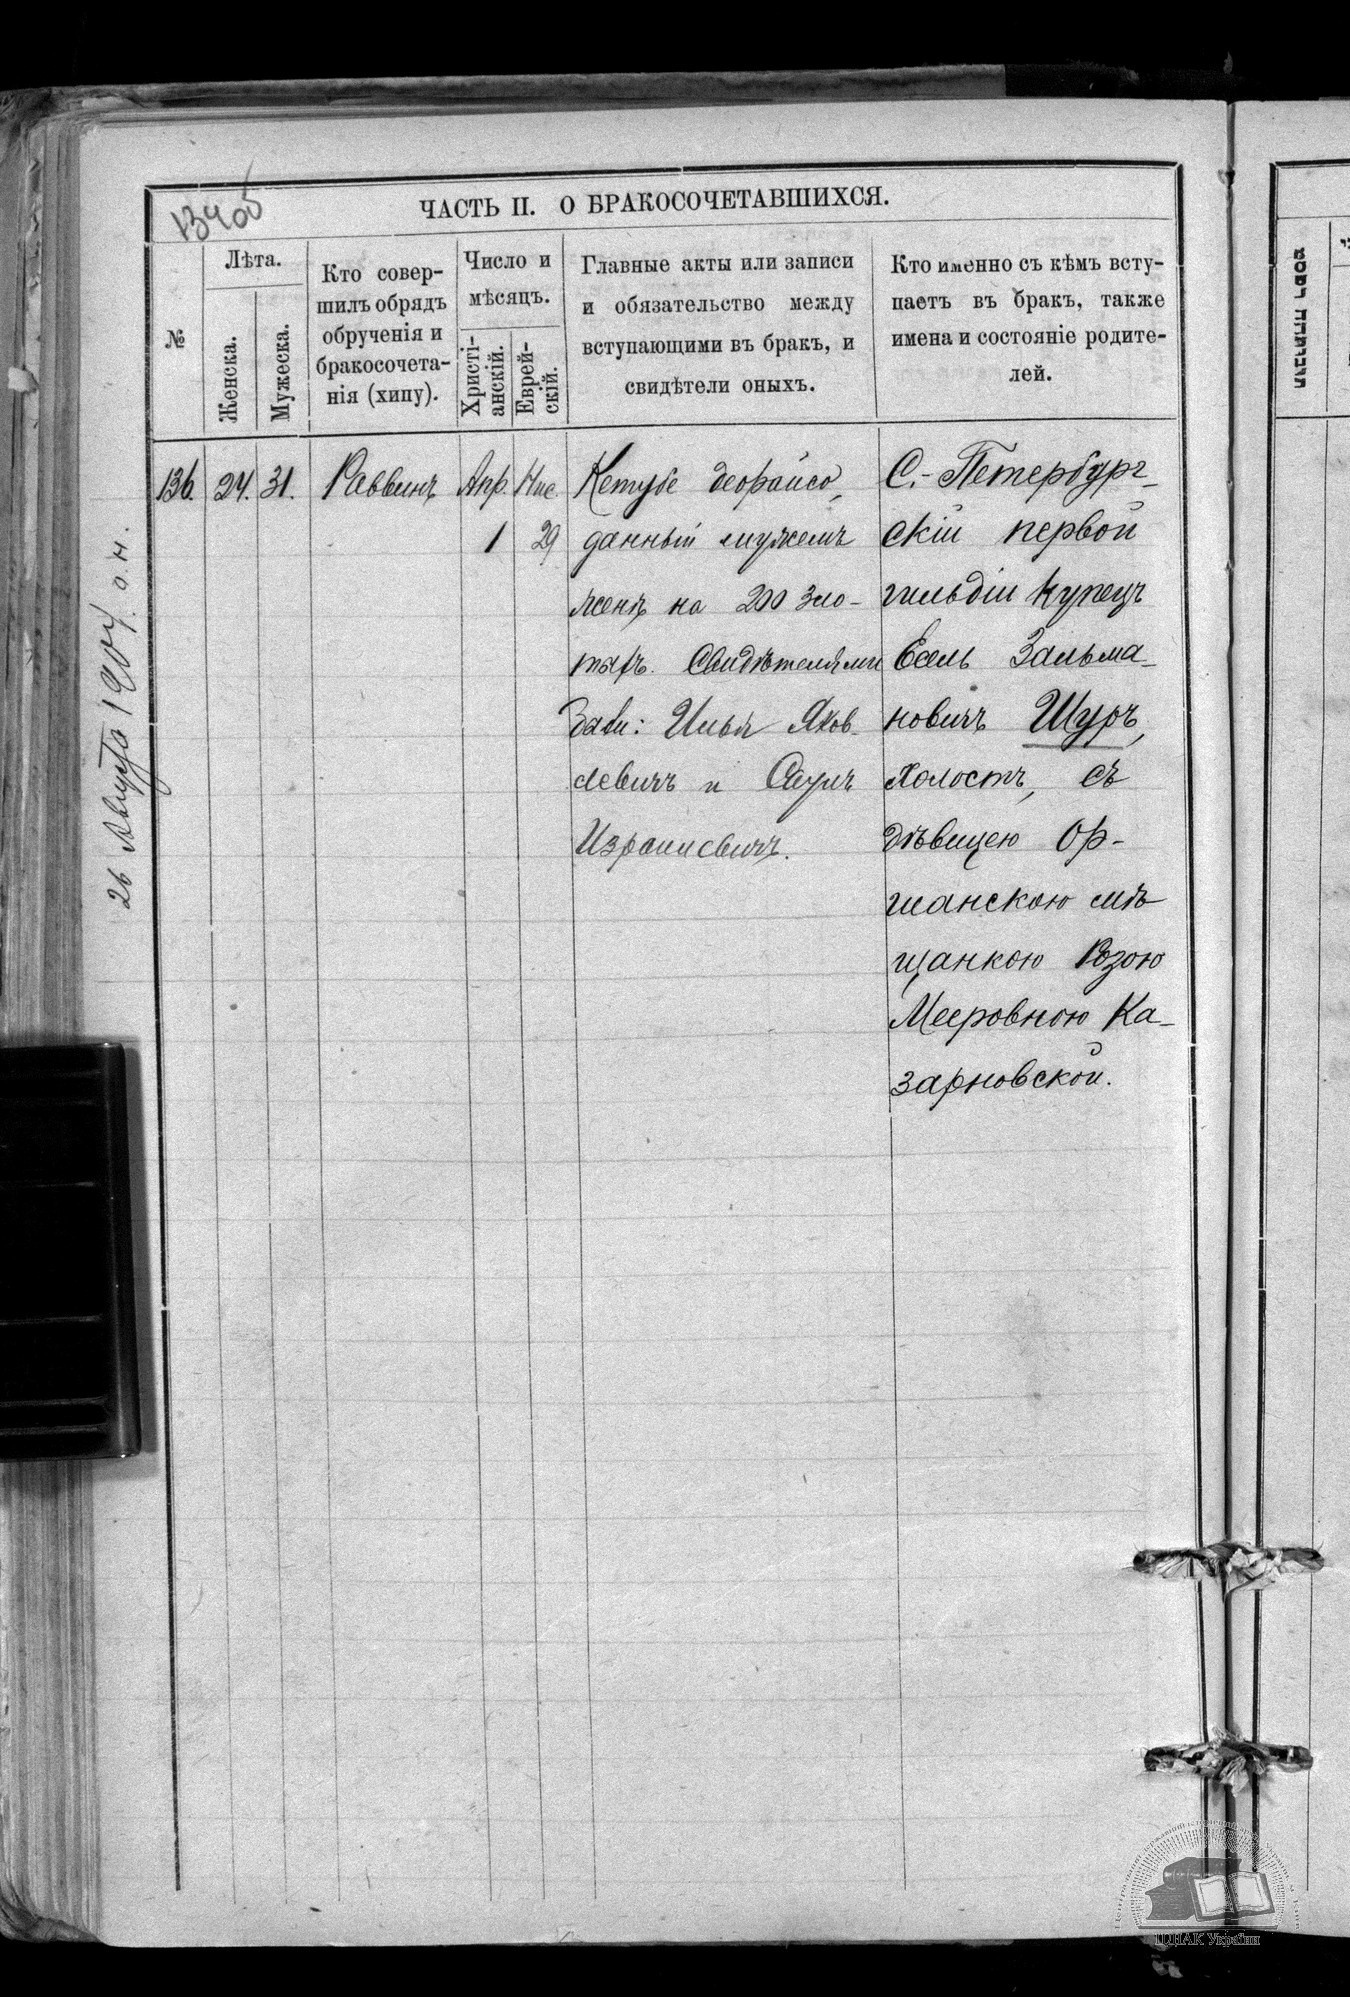 134об
ЧАСТЬ II. О БРАКОСОЧЕТАВШИХСЯ.
№
Лѣта.
Женска.
Мужеска.
Кто совер-
шилъ обрядъ
обрученія и
бракосочета-
нія (хипу).
Число и
мѣсяцъ.
Христі-
анскій.
Еврей-
скій.
Главные акты или записи
и обязательство между
вступающими въ бракъ, и
свидѣтели оныхъ.
Кто именно съ кѣмъ всту-
паетъ въ бракъ, также
имена и состояніе родите-
лей.
136. 24. 31. Раввинъ Апр. Нис.
1 29
Кетубе деорайсо,
данный мужемъ
женѣ на 200 зло-
тыхъ. Свидѣтелями
были: Илья Яков-
левичъ и Саулъ
Израилевичъ.
С.-Петербург-
скій первой
гильдіи купецъ
Есель Зальма-
новичъ Шуръ,
холостъ, съ
дѣвицею Ор-
шанскою мѣ
щанкою Розою
Мееровною Ка-
зарновской.
26 Августа 1904. о.н.
ЦДІАК України